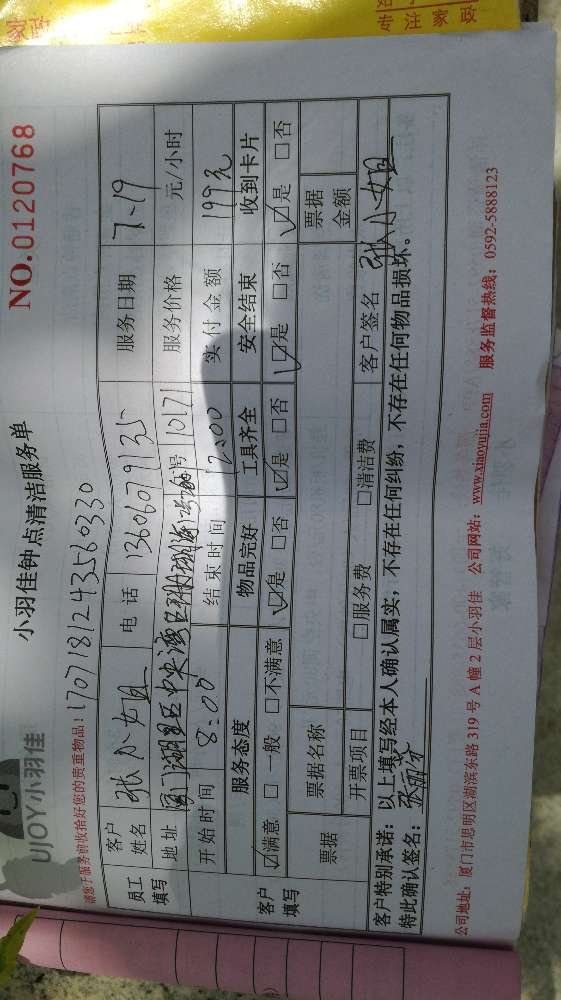 专注家政
UJOY小羽佳
小羽佳钟点清洁服务单
NO.0120768
请您于服务前收拾好您的贵重物品!
1707181243560330
员工填写
客户姓名 张小姐 电话 13606079135 服务日期 7-19
地址 厦门 中央湾区 号 10171 服务价格 元/小时
开始时间 8:00 结束时间 12:00 实付金额 199元
客户填写
服务态度 物品完好 工具齐全 安全结束 收到卡片
☑满意 □一般 □不满意 ☑是 □否 ☑是 □否 ☑是 □否 ☑是 □否
票据 票据名称 票据金额
开票项目 □服务费 □清洁费 客户签名 张小姐
客户特别承诺: 以上填写经本人确认属实,不存在任何纠纷,不存在任何物品损坏。
特此确认签名:
公司地址: 厦门市思明区湖滨东路319号A幢2层小羽佳 公司网站: www.xiaoyujia.com 服务监督热线: 0592-5888123